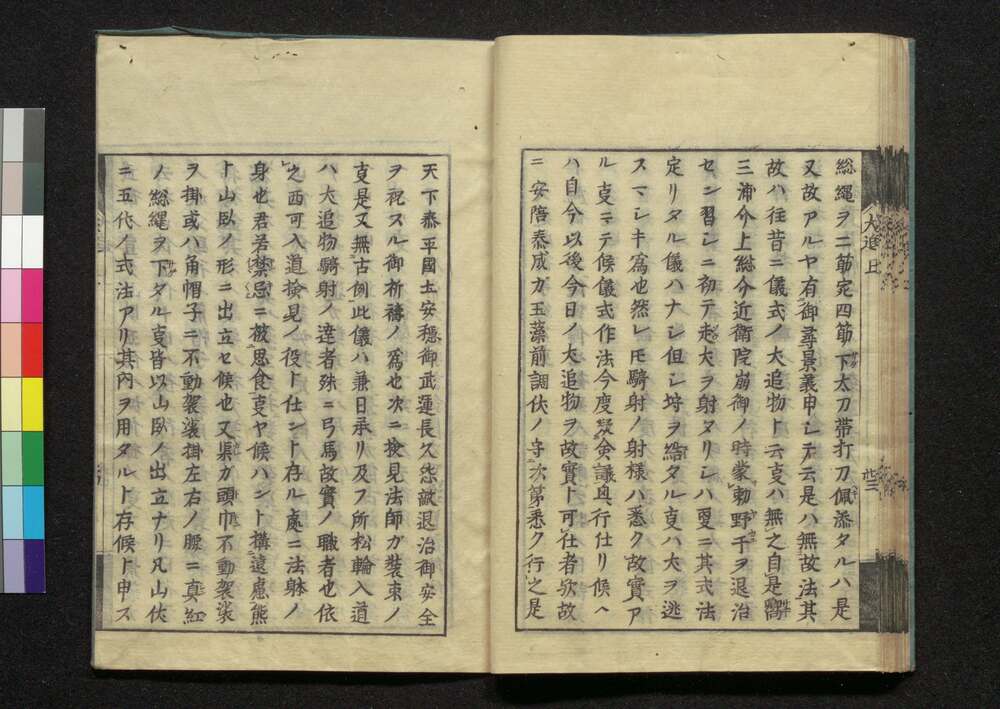 総縄ヲ二筋定四筋下太刀帯打刀佩添タルハ是
又故アルヤ有御尋景義申シテ云是ハ無故法其
故ハ往昔ニ儀式ノ犬追物ト云㕝ハ無之自是
三浦介上総介近衛院崩御ノ時蒙勅野干ヲ退治
セン習シニ初テ走犬ヲ射タリシハ更ニ其式法
定リタル儀ハナシ但シ埒ヲ結タル㕝ハ犬ヲ逃
スマシキ為也然レ𪜈騎射ノ射様ハ悉ク故實ア
ル㕝ニテ候儀式作法今度僉議興行仕リ候ヘ
ハ自今以後今日ノ犬追物ヲ故實ト可仕者欤故
ニ安陪泰成カ玉藻前調伏ノ守次第悉ク行之是
天下泰平國土安穏御武運長久怨敵退治御安全
ヲ祝スル御祈祷ノ為也次ニ検見法師ガ装束ノ
㕝是又無古例此儀ハ兼日承リ及フ所松輪入道
ハ犬追物騎射ノ達者殊ニ弓馬故實ノ職者也依
之西可入道検見ノ役ト仕ント存ル處ニ法躰ノ
身也君若禁忌ニ被思食㕝ヤ候ハント構遠慮熊
ト山臥ノ形ニ出立セ候也又渠カ頭巾不動袈裟
ヲ掛或ハ角帽子ニ不動袈裟掛左右ノ腰ニ真紅
ノ総縄ヲ下タル㕝皆以山臥ノ出立ナリ凡山伏
ニ五代ノ式法アリ其内ヲ用タルト存候ト申ス
犬追上
廿三